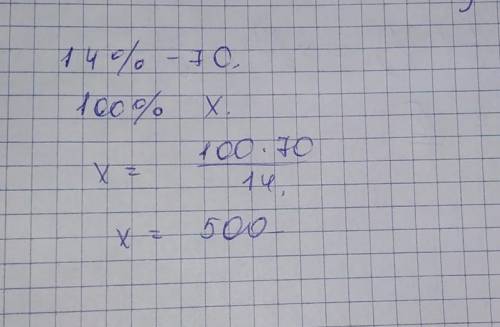 14% - 70.
100% x.
x = 100 · 70 / 14.
x = 500